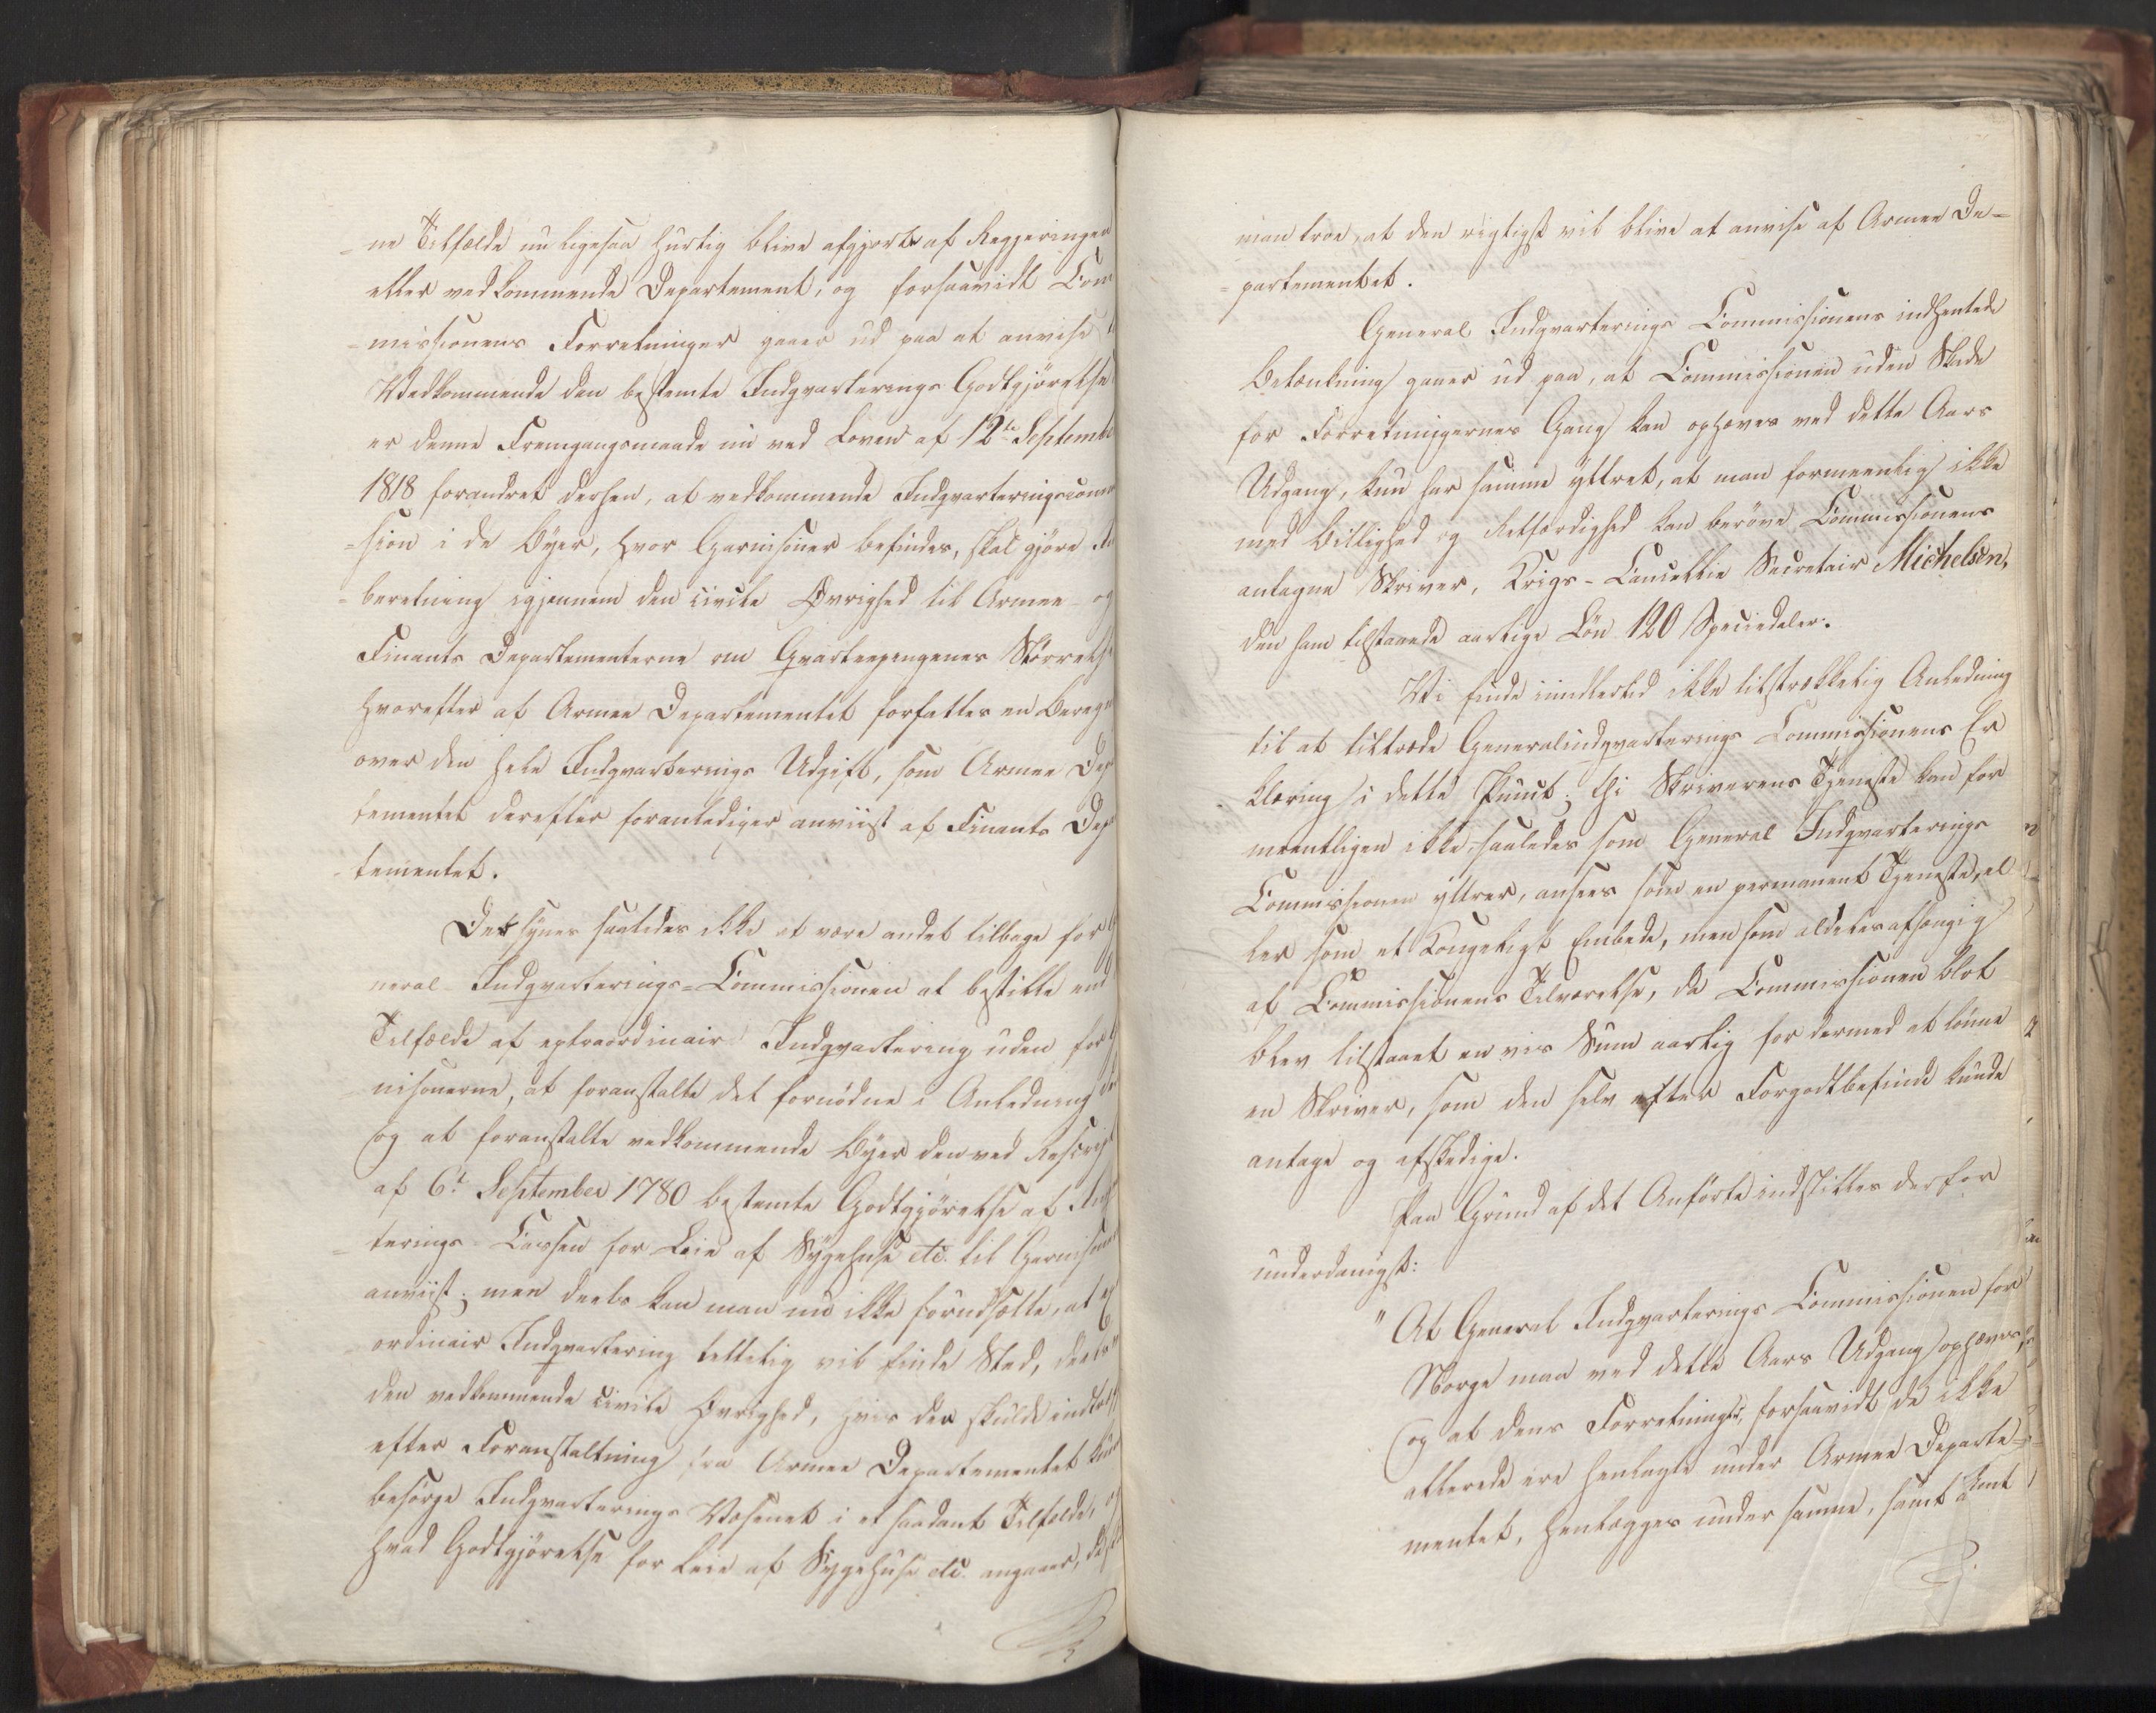 =ne Tilfælde nu ligesaa hurtig blive afgjorte af Regjeringen
eller vedkommende Departement, og forsaavidt Com
=missionens Forretninger gaaer ud paa at anvise
Vedkommende den bestemte Indqvarterings Godtgjörelse
er denne Fremgangsmaade nu ved Loven af 12te Septemb
1818 forandret derhen, at vedkommende Indqvarteringscom
=sion i de Byer, hvor Garnisoner befindes, skal gjöre
=beretning igjennem den civile Øvrighed til Armee- og
Finants Departementerne om Qvarteerpengenes Störrelse
hvorefter af Armee Departementet forfattes en Bereg
over den hele Indqvarterings Udgift, som Armee Dep
tementet derefter foranlediger anviist af Finants Dep
=tementet.
Det synes saaledes ikke at være andet tilbage for
neral-Indqvarterings-Commissionen at bestille end
Tilfælde af extraordinair Indqvartering uden for
nisonerne, at foranstalte det fornödne i Anledning
og at foranstalte vedkommende Byer den ved Rescript
af 6te September 1780 bestemte Godtgjörelse af
=terings-Cassen for Leie af Sygehuse etc. til Garnison
anviist; men deels kan man nu ikke forudsætte, at
ordinair Indqvartering lettelig vil finde Sted, deels
den vedkommende civile Øvrighed, hvis det skulde indtræf
efter Foranstaltning fra Armee Departementet kun
besörge Indqvarterings Væsenet i et saadant Tilfælde,
hvad Godtgjörelse for Leie af Sygehuse etc. angaaer,
man troe, at den rigtigst vil blive at anvise af Armee De=
=partementet.
General Indqvarterings Commissionens indhentede
Betænkning gaaer ud paa, at Commissionen uden Skade
for Forretningernes Gang kan ophæves ved dette Aars
Udgang, kun har samme yttret, at man formeentlig ikke
med Billighed og Retfærdighed kan beröve Commissionens
antagne Skriver, Krigs-Cancellie Secretair Michelsen,
den ham tilstaaede aarlige Lön 120 Speciedaler.
Vi finde imidlertid ikke tilstrækkelig Anledning
til at tiltræde Generalindqvarterings Commissionens Er
klæring i dette Punct; thi Skriverens Tjeneste kan for
meentligen ikke, saaledes som General Indqvarterings
Commissionen yttrer, ansees som en permanent Tjeneste, el
ler som et Kongeligt Embede, men som aldeles afhængig
af Commissionens Tilværelse, da Commissionen blot
blev tilstaaet en vis Sum aarlig for dermed at lönne
en Skriver, som den selv efter Forgodtbefinde kunde
antage og afskedige.
Paa Grund af det Anförte indstilles derfor
underdanigst:
"At General Indqvarterings Commissionen for
Norge maa ved dette Aars Udgang ophæves,
og at dens Forretninger, forsaavidt de ikke
allerede ere henlagte under Armee Departe=
mentet, henlægges under samme, samt at